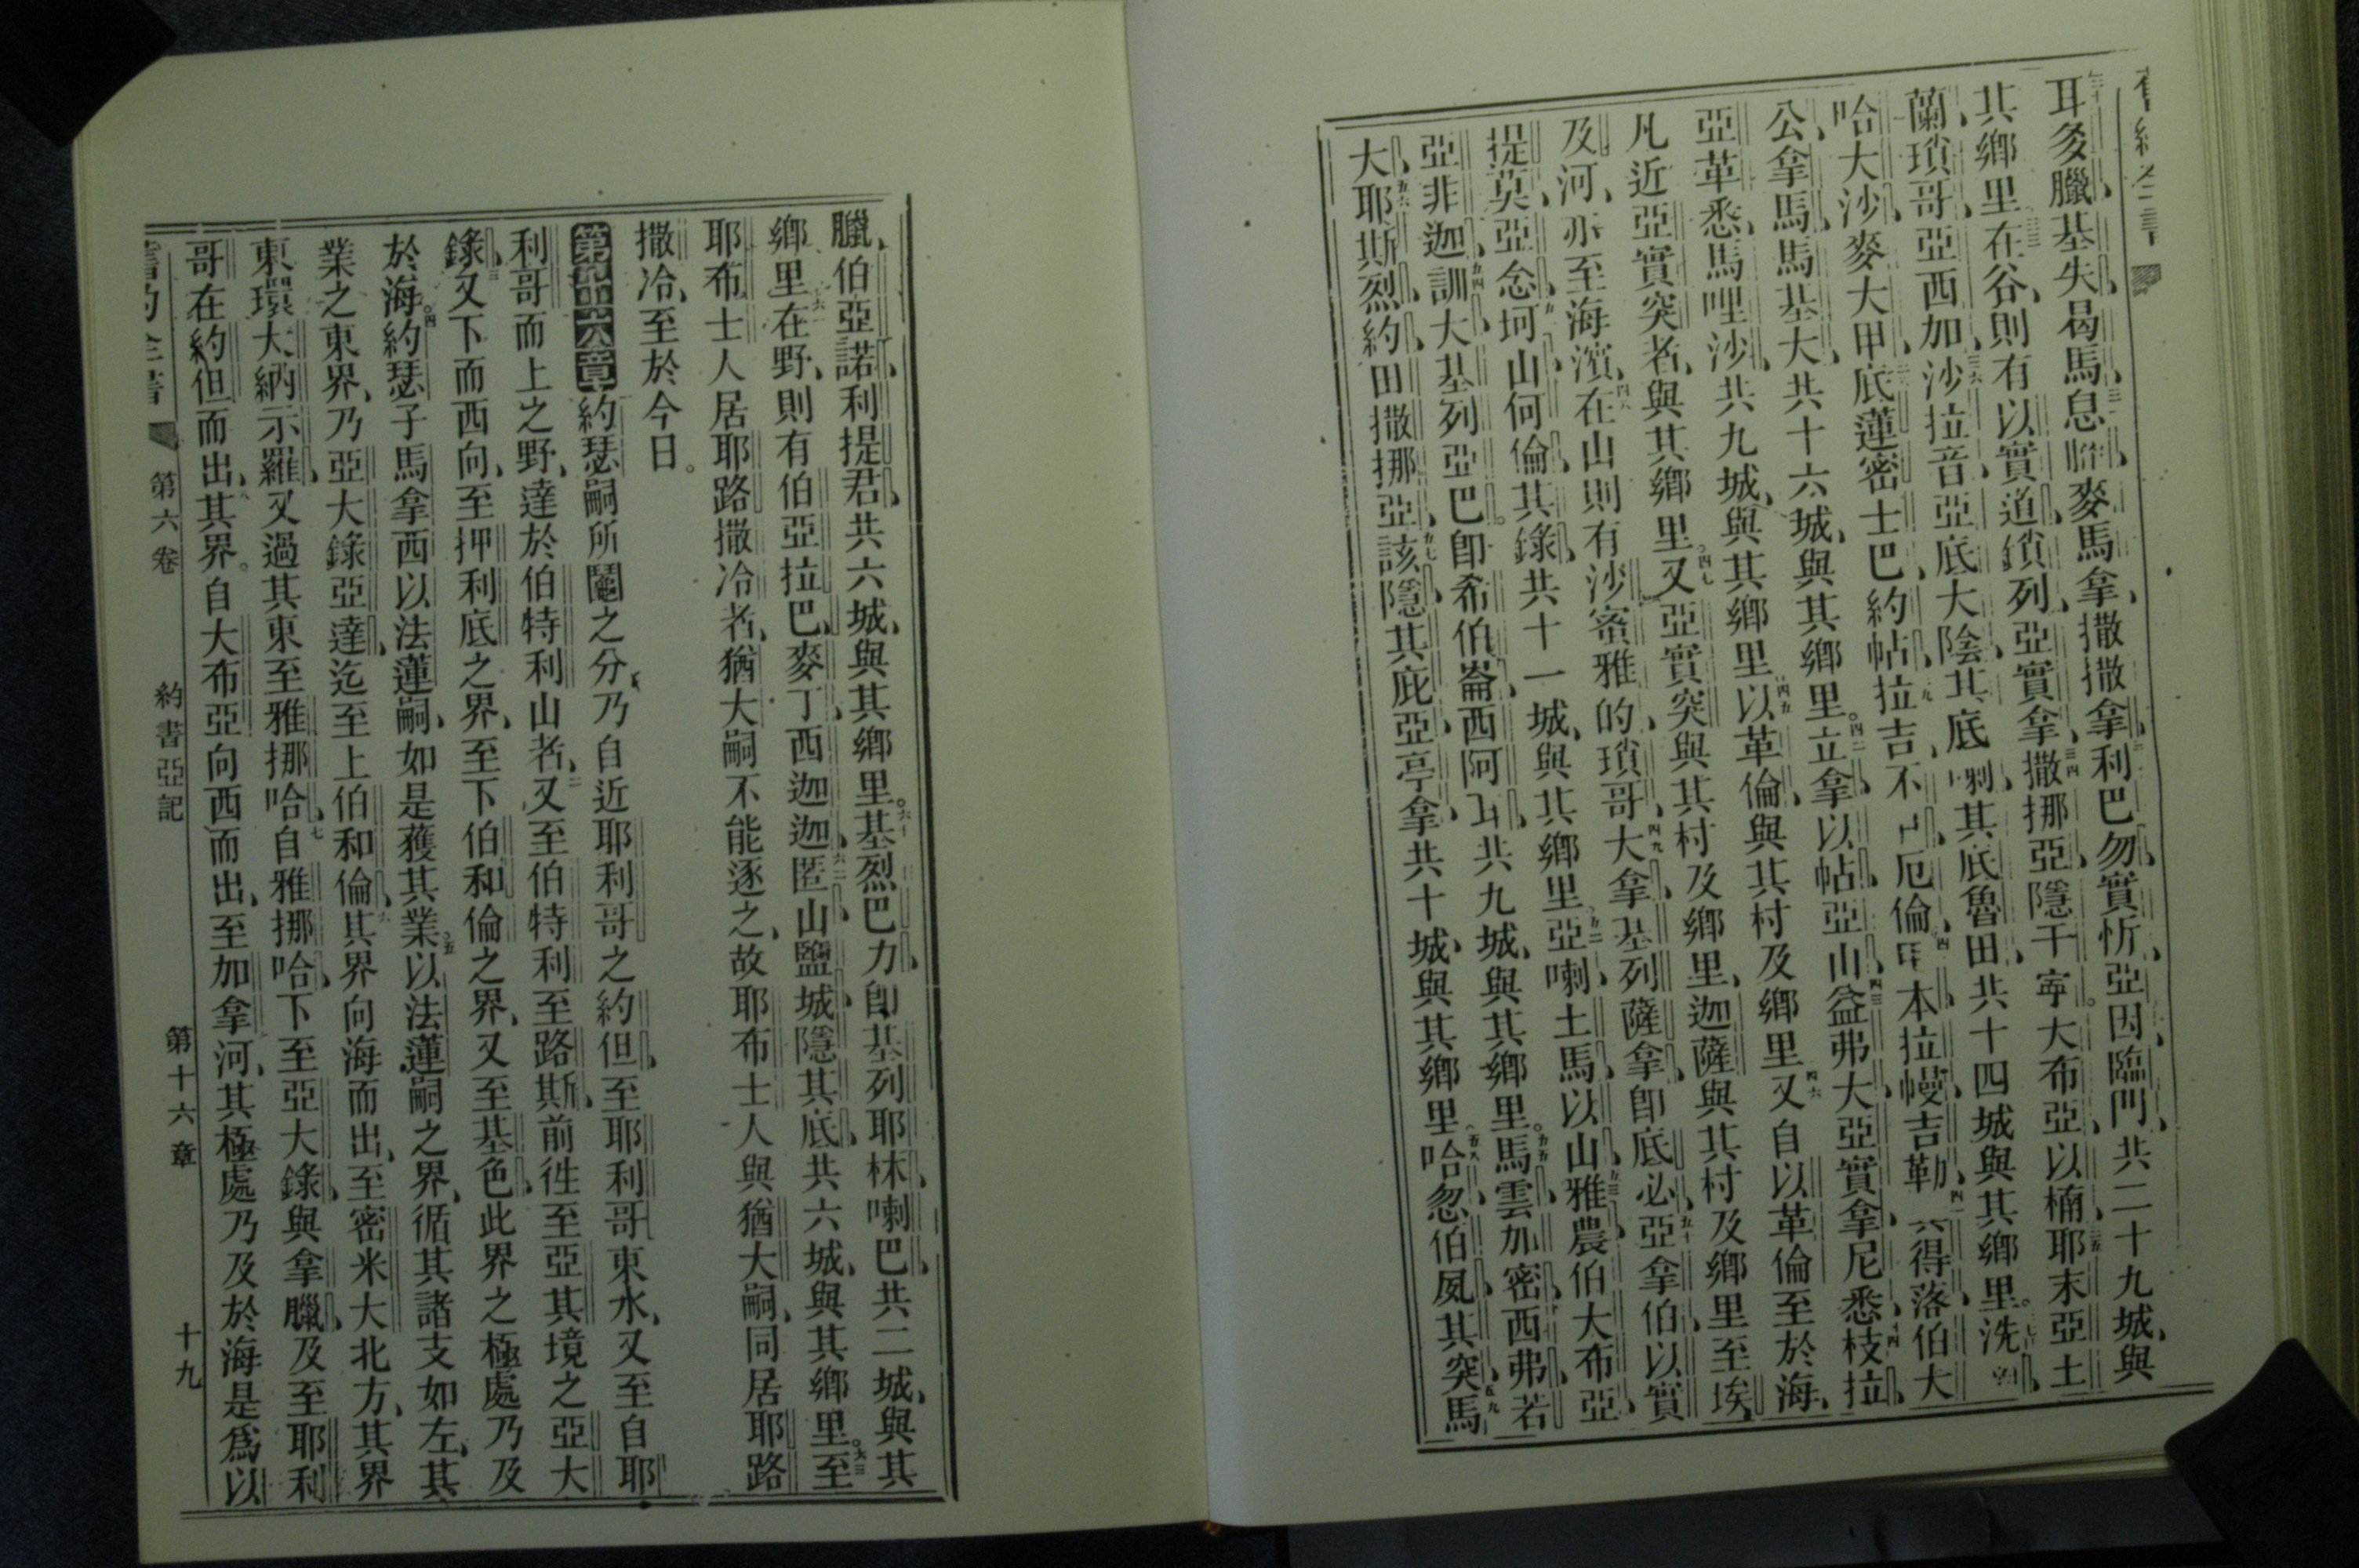 耳㕛臘基失曷馬息麥馬拿撒撒拿利巴勿實忻亞因臨門共二十九城與
其鄉里在谷則有以實道鎖列亞實拿撒挪亞隱干寕大布亞以楠耶末亞土
蘭瑣哥亞西加沙拉音亞底大陰其底其底魯田共十四城與其鄉里洗
哈大沙麥大甲底蓮密士巴約帖拉吉不厄倫本拉幔吉勒得落伯大
公拿馬馬基大共十六城與其鄉里立拿以帖亞山益弗大亞實拿尼悉枝拉
亞革悉馬哩沙共九城與其鄉里以革倫與其村及鄉里又自以革倫至於海
凡近亞實突者與其鄉里又亞實突與其村及鄉里迦薩與其村及鄉里至埃
及河亦至海濱在山則有沙密雅的瑣哥大拿基列薩拿卽底必亞拿伯以實
提莫亞念坷山何倫其錄共十一城與其鄉里亞喇土馬以山雅農伯大布亞
亞非迦訓大基列亞巴卽希伯崙西阿耳共九城與其鄉里馬雲加密西弗若
大耶斯烈約田撒挪亞該隱其庇亞亭拿共十城與其鄉里哈忽伯夙其突馬
臘伯亞諾利提君共六城與其鄉里基烈巴力卽基列耶林喇巴共二城與其
鄉里在野則有伯亞拉巴麥丁西迦迦匿山鹽城隱其底共六城與其鄉里至
耶布士人居耶路撒冷者猶大嗣不能逐之故耶布士人與猶大嗣同居耶路
撒冷至於今日
第十六章約瑟嗣所鬮之分乃自近耶利哥之約但至耶利哥東水又至自耶
利哥而上之野達於伯特利山者又至伯特利至路斯前徃至亞其境之亞大
錄又下而西向至押利底之界至下伯和倫之界又至基色此界之極處乃及
於海約瑟子馬拿西以法蓮嗣如是蓷其業以法蓮嗣之界循其諸支如左其
業之東界乃亞大錄亞達迄至上伯和倫其界向海而出至密米大北方其界
東環大納示羅又過其東至雅挪哈自雅挪哈下至亞大錄與拿臘及至耶利
哥在約但而出其界自大布亞向西而出至加拿河其極處乃及於海是爲以
舊約全書 第六卷 約書亞記 第十六章 十九